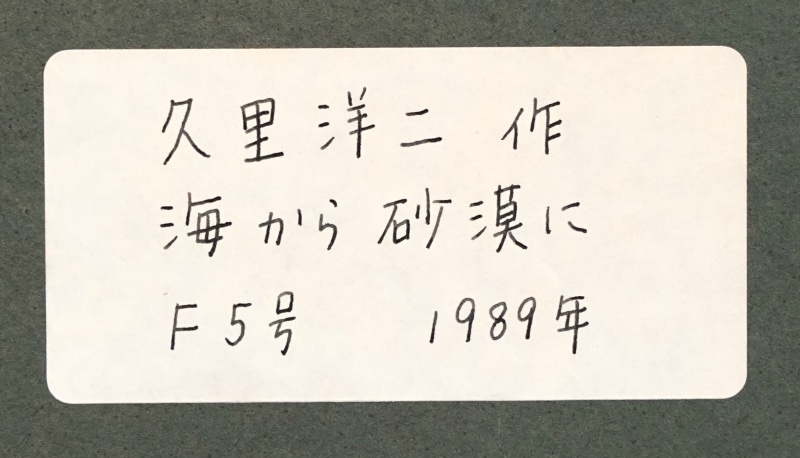 久里洋二 作
海から砂漠に
F5号 1989年